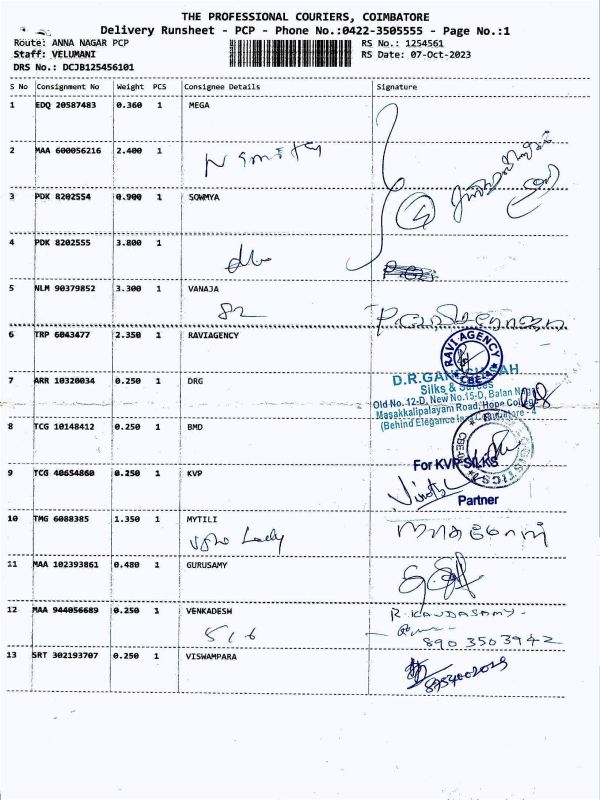 THE PROFESSIONAL COURIERS, COIMBATORE
Delivery Runsheet - PCP - Phone No.:0422-3505555 - Page No.:1
Route: ANNA NAGAR PCP RS No.: 1254561
Staff: VELUMANI RS Date: 07-Oct-2023
DRS No.: DCJB125456101
S No Consignment No Weight PCS Consignee Details Signature
1 EDQ 20587483 0.360 1 MEGA
2 MAA 600056216 2.400 1
3 PDK 8202554 0.900 1 SOWMYA
4 PDK 8202555 3.800 1
5 NLM 90379852 3.300 1 VANAJA
6 TRP 6043477 2.350 1 RAVIAGENCY
RAVI AGENCY
7 ARR 10320034 0.250 1 DRG
Silks &
Old No. 12-D, New No.15-D, Balan Nagar
Masakkalipalayam Road, Hope College
(Behind Elegance
8 TCG 10148412 0.250 1 BMD
For KVP SILKS
9 TCG 40654860 0.250 1 KVP
Partner
10 TMG 6088385 1.350 1 MYTILI
11 MAA 102393861 0.480 1 GURUSAMY
12 MAA 944056689 0.250 1 VENKADESH
R. KANDASAMY.
516
8903503942
13 SRT 302193707 0.250 1 VISWAMPARA